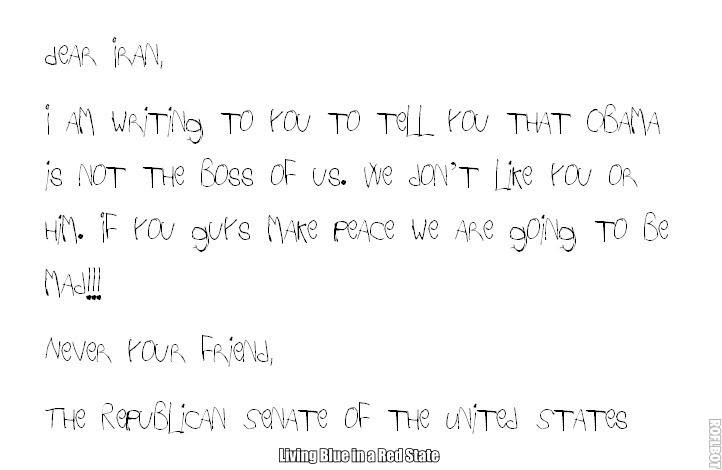 Dear Iran,
I am writing to you to tell you that Obama
is not the boss of us. We don't like you or
him. If you guys make peace we are going to be
mad!!!
Never your friend,
The Republican Senate of the United States
Living Blue in a Red State
ROFLBOT